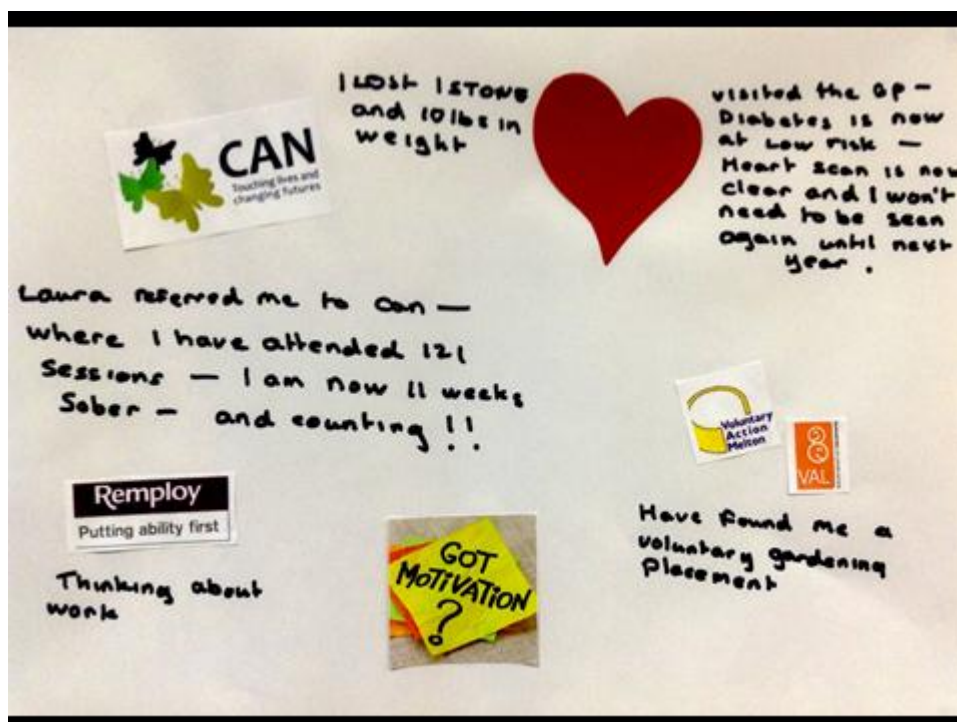 I LOST 1 STONE
and 10lbs in
weight
CAN
Touching lives and
changing futures
visited the GP –
Diabetes is now
at Low risk –
Heart scan is now
clear and I won't
need to be seen
again until next
year.
Laura referred me to can –
where I have attended 121
Sessions – I am now 11 weeks
Sober – and counting !!
Voluntary
Action
Melton
VAL
Have found me a
voluntary gardening
Placement
Remploy
Putting ability first
Thinking about
work
GOT
MOTIVATION
?